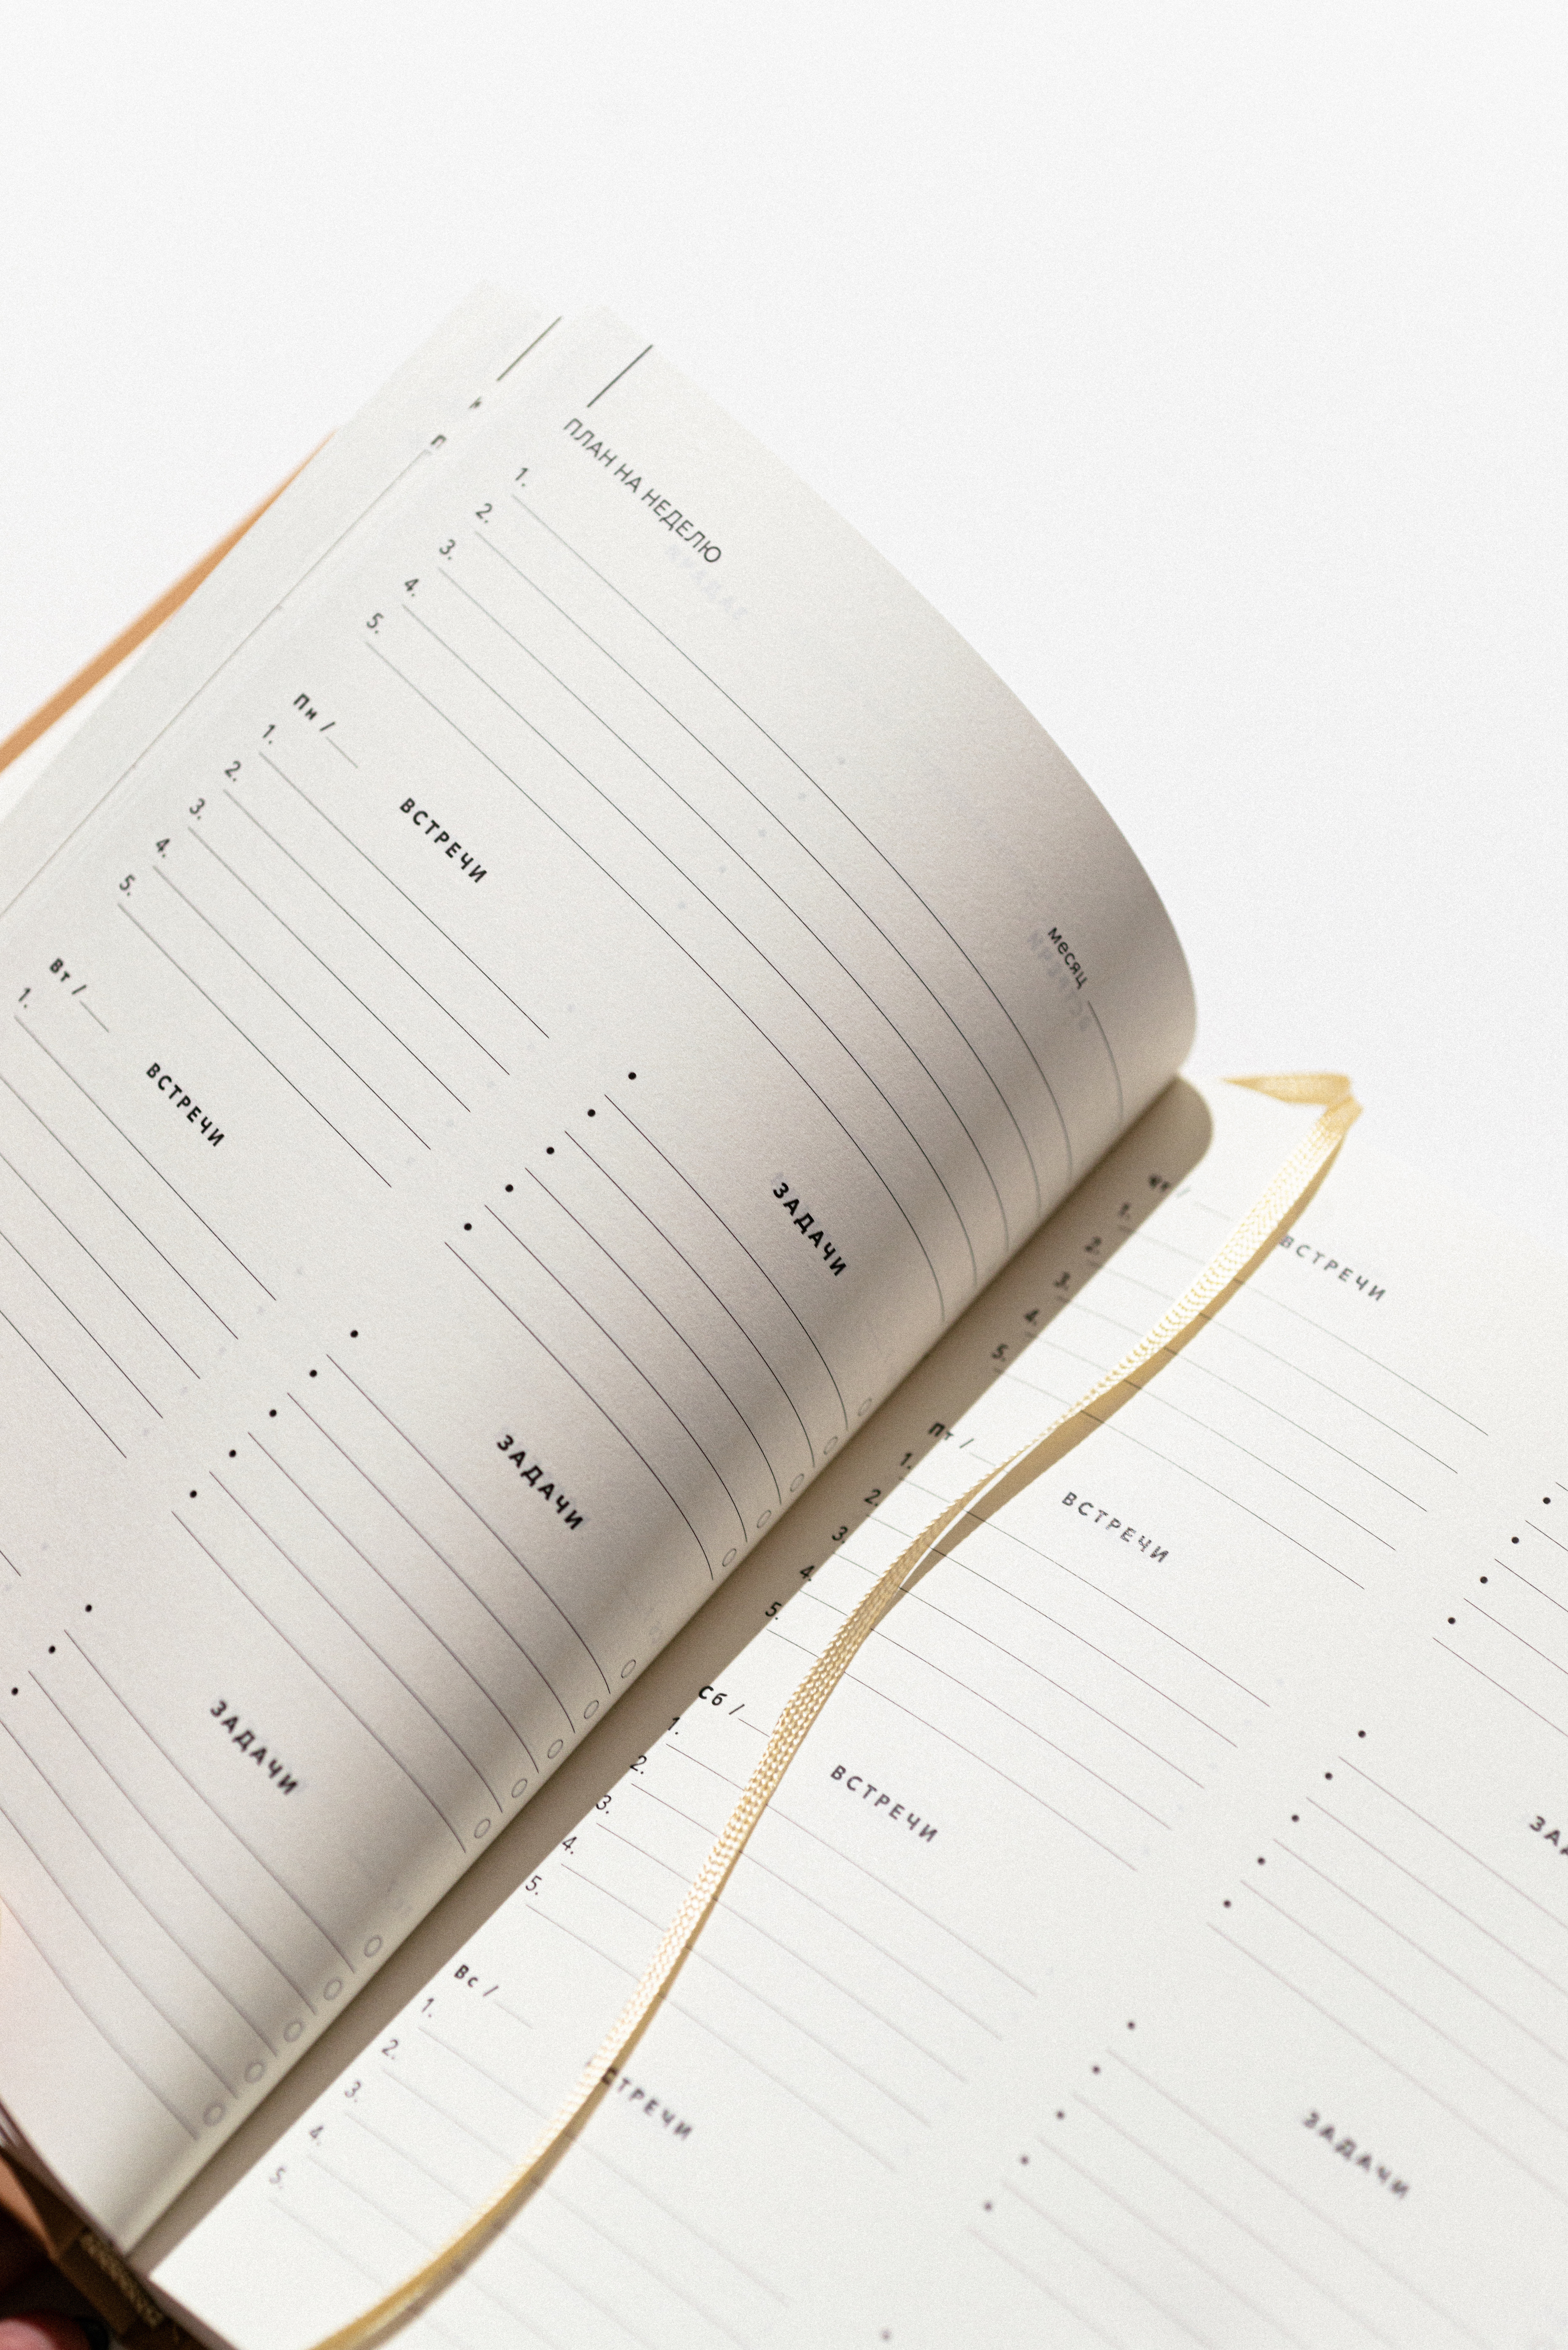 ПЛАН НА НЕДЕЛЮ
месяц
1.
2.
3.
4.
5.
Пн /
ВСТРЕЧИ
ЗАДАЧИ
1.
2.
3.
4.
5.
Вт /
ВСТРЕЧИ
ЗАДАЧИ
1.
ЗАДАЧИ
Чт /
ВСТРЕЧИ
1.
2.
3.
4.
5.
Пт /
ВСТРЕЧИ
ЗА
1.
2.
3.
4.
5.
Сб /
ВСТРЕЧИ
ЗАДАЧИ
1.
2.
3.
4.
5.
Вс /
СТРЕЧИ
1.
2.
3.
4.
5.